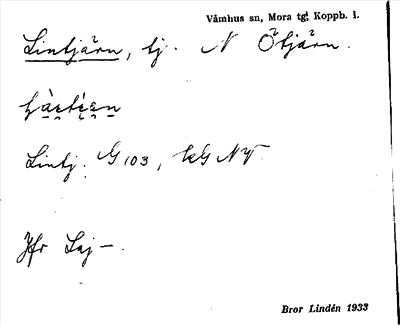 Våmhus sn, Mora tg, Koppb. l.
Lintjärn, tj. N Ötjärn.
Lintj. G 103, kG NV
Jfr Laj –.
Bror Lindén 1933